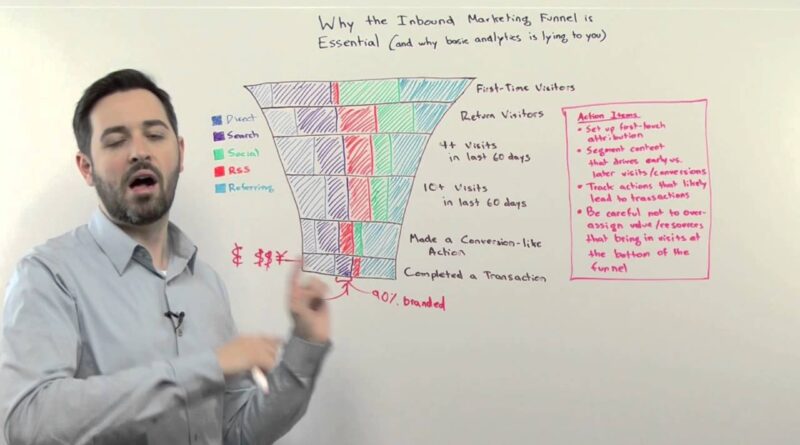 Why the Inbound Marketing Funnel is
Essential (and why basic analytics is lying to you)
Direct
Search
Social
RSS
Referring
First-Time Visitors
Return Visitors
4+ Visits
in last 60 days
10+ Visits
in last 60 days
Made a Conversion-like
Action
Completed a Transaction
$ $$¥
90% branded
Action Items
• Set up first-touch
attribution
• Segment content
that drives early vs.
later visits/conversions
• Track actions that likely
lead to transactions
• Be careful not to over-
assign value/resources
that bring in visits at
the bottom of the
funnel